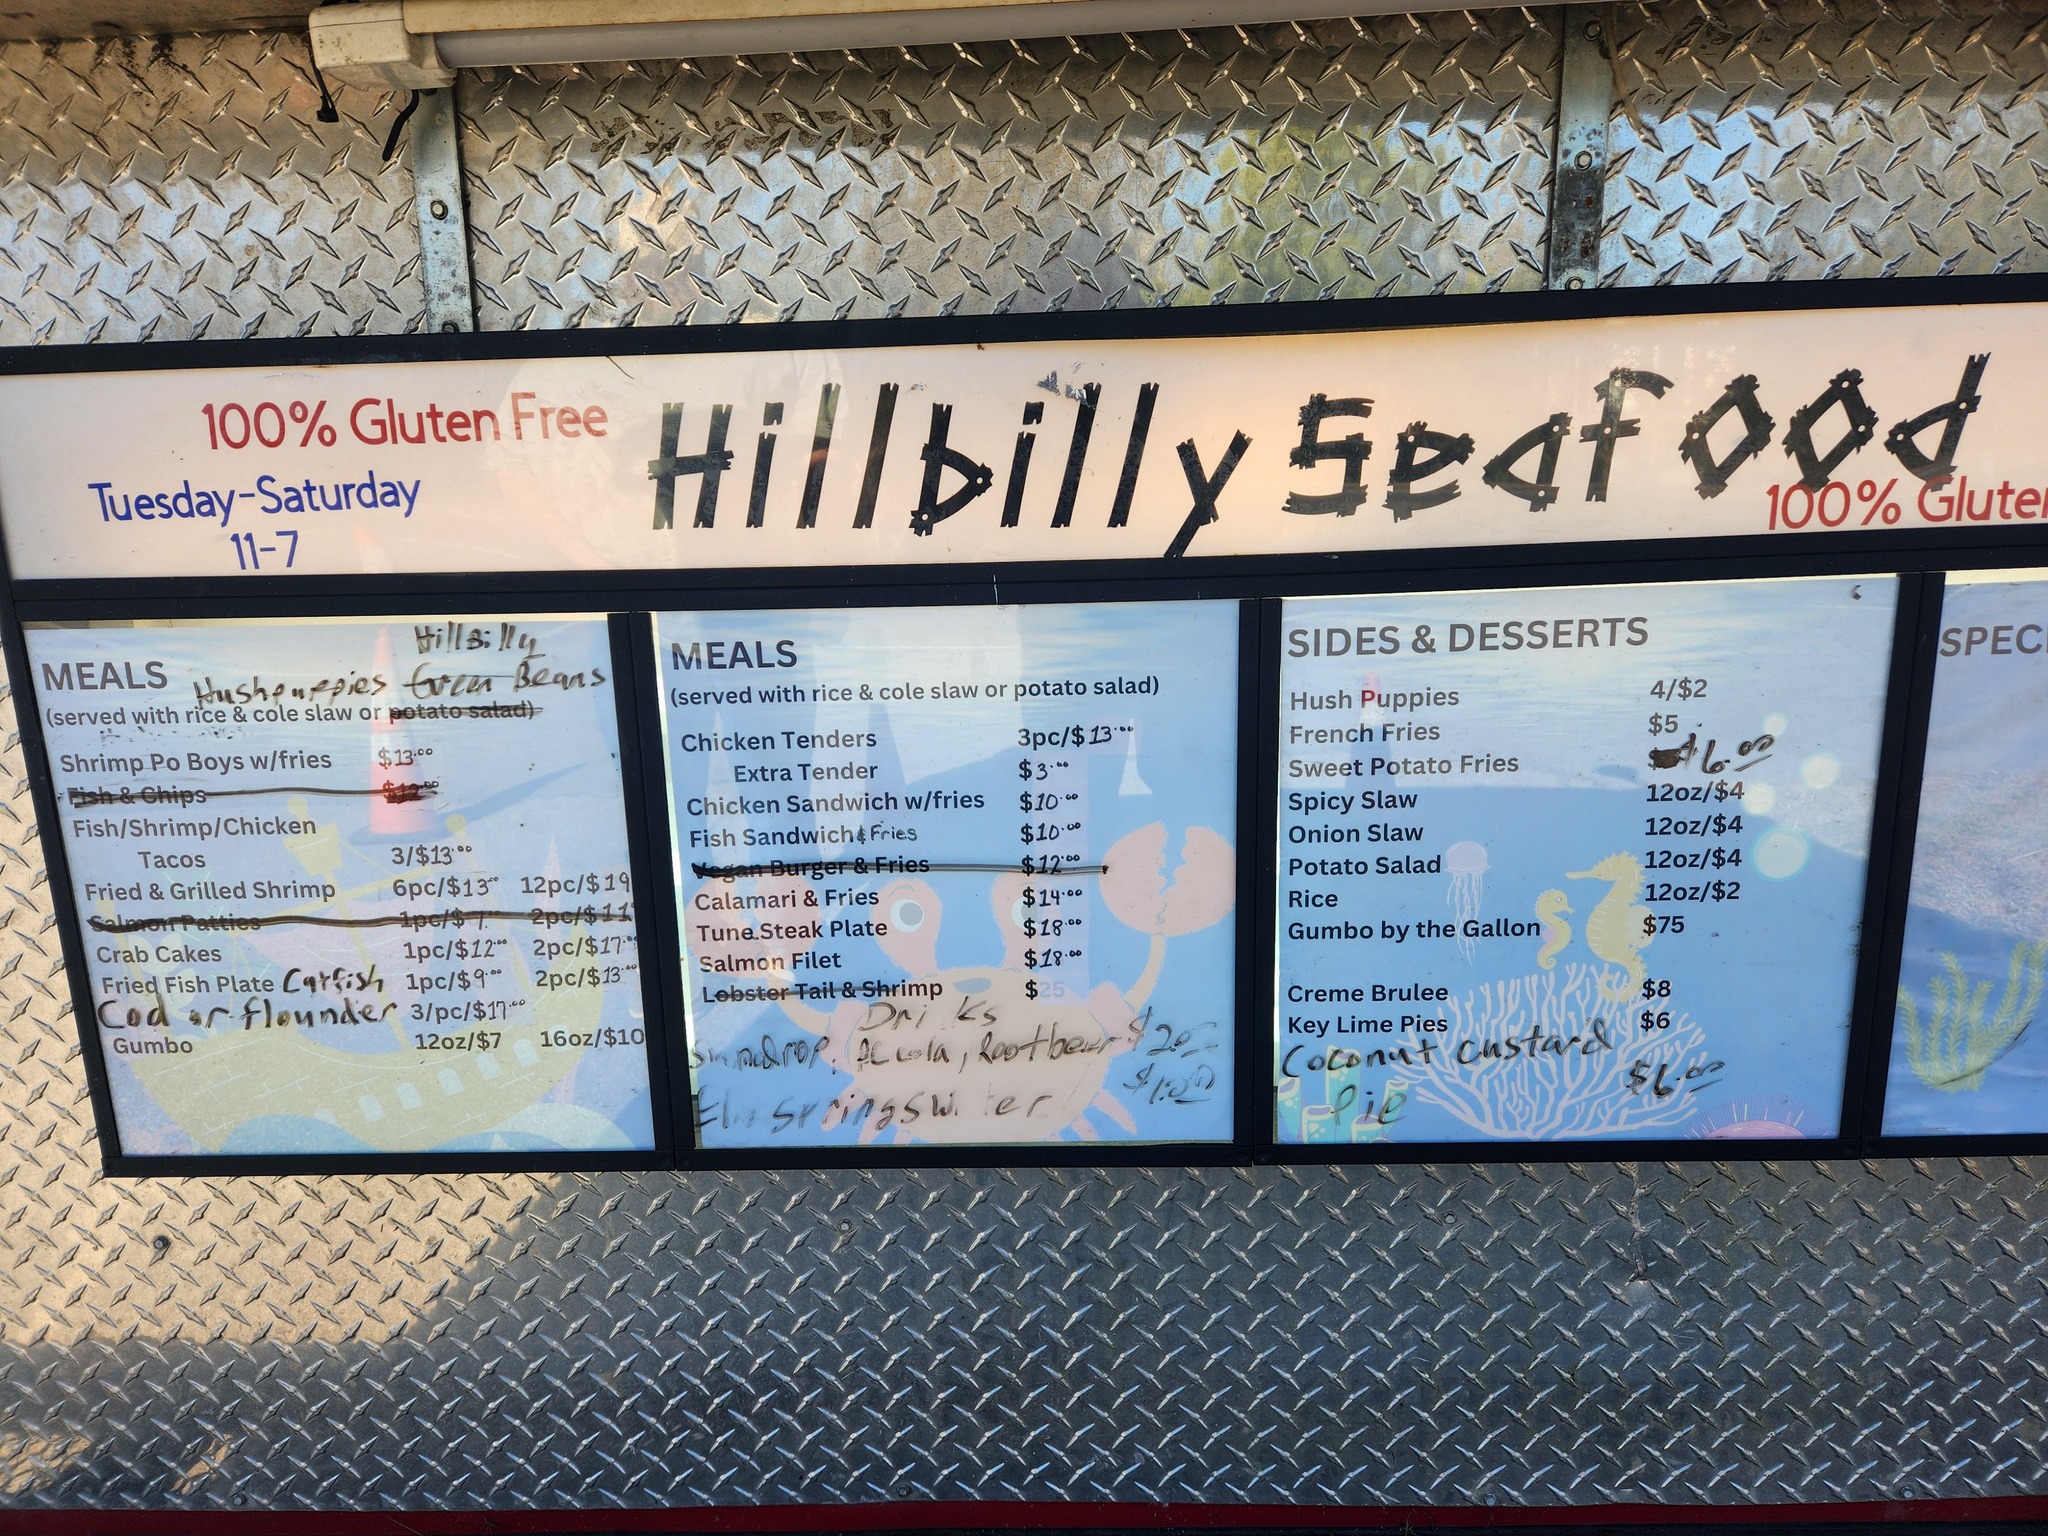 100% Gluten Free
Hillbilly Seafood
Tuesday-Saturday
11-7
100% Gluten
HillBilly
MEALS Hushpuppies Green Beans
(served with rice & cole slaw or potato salad)
Shrimp Po Boys w/fries $13.00
Fish & Chips $12.00
Fish/Shrimp/Chicken
Tacos 3/$13.00
Fried & Grilled Shrimp 6pc/$13.00 12pc/$19
Salmon Patties 1pc/$7.00 2pc/$11
Crab Cakes 1pc/$12.00 2pc/$17.00
Fried Fish Plate Catfish 1pc/$9.00 2pc/$13.00
Cod or flounder 3/pc/$17.00
Gumbo 12oz/$7 16oz/$10
MEALS
(served with rice & cole slaw or potato salad)
Chicken Tenders 3pc/$13.00
Extra Tender $3.00
Chicken Sandwich w/fries $10.00
Fish Sandwich & Fries $10.00
Vegan Burger & Fries $12.00
Calamari & Fries $14.00
Tune Steak Plate $18.00
Salmon Filet $18.00
Lobster Tail & Shrimp $25
Drinks
Sundrop, RC cola, Rootbeer $2.00
Elm Springs Water $1.00
SIDES & DESSERTS
Hush Puppies 4/$2
French Fries $5
Sweet Potato Fries $6.00
Spicy Slaw 12oz/$4
Onion Slaw 12oz/$4
Potato Salad 12oz/$4
Rice 12oz/$2
Gumbo by the Gallon $75
Creme Brulee $8
Key Lime Pies $6
Coconut custard
Pie $6.00
SPECI